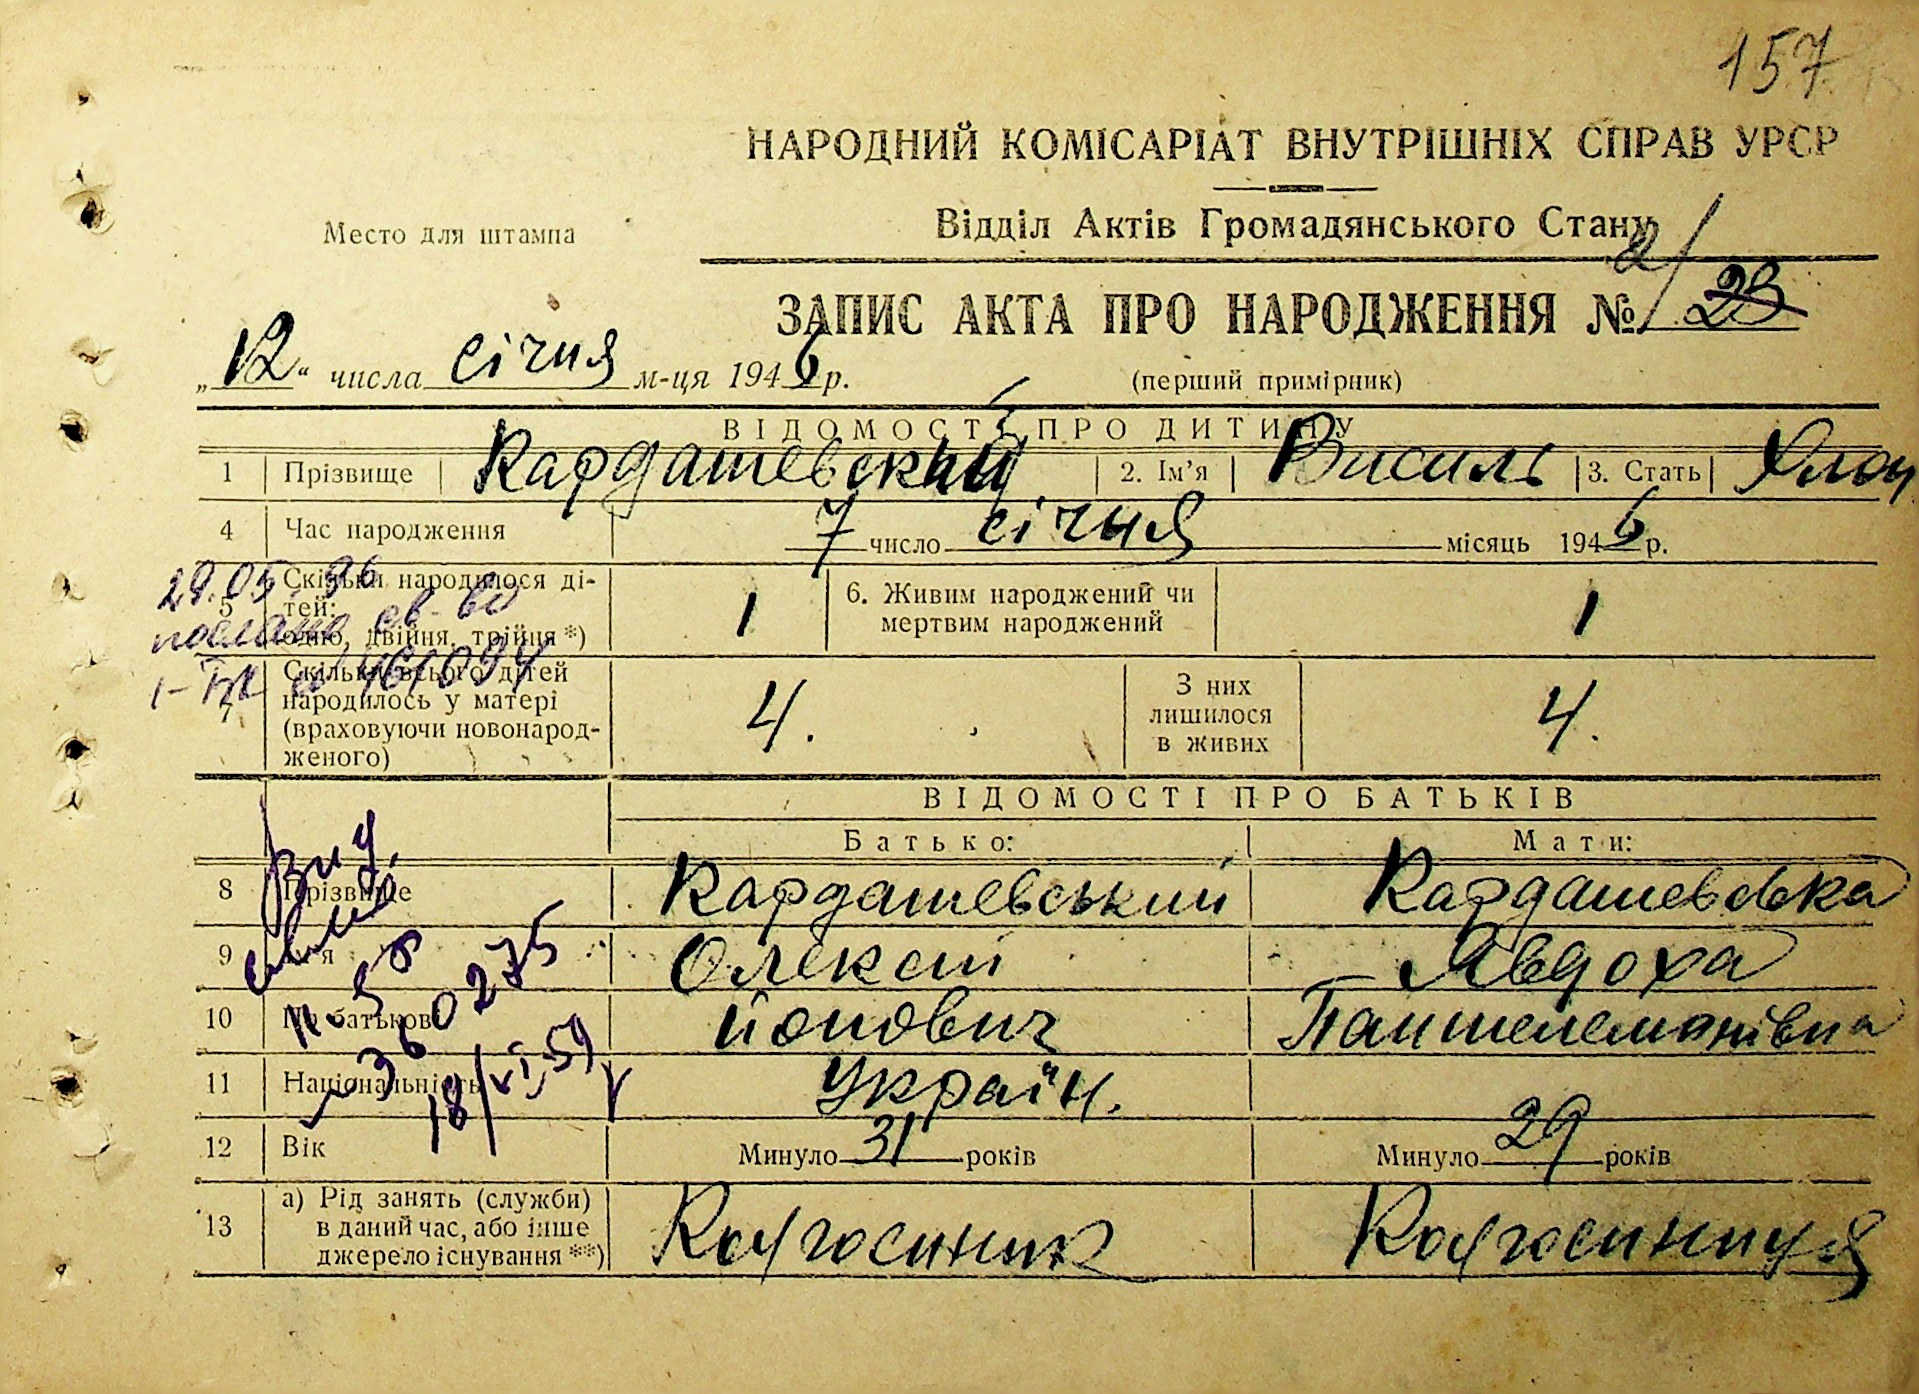 157
НАРОДНИЙ КОМІСАРІАТ ВНУТРІШНІХ СПРАВ УРСР
Відділ Актів Громадянського Стану
Место для штампа
2/
ЗАПИС АКТА ПРО НАРОДЖЕННЯ № 23
„12“ числа січня м-ця 1946 р.
(перший примірник)
ВІДОМОСТІ ПРО ДИТИНУ
1 Прізвище Кардашевский 2. Ім'я Василь 3. Стать Хлоп
4 Час народження 7 число січня місяць 1946 р.
29.05.96
послано св-во
5 Скільки народилося ді-
тей:
одно, двійня, трійня *)
1
6. Живим народжений чи
мертвим народжений
1
7 Скільки всього дітей
народилось у матері
(враховуючи новонарод-
женого)
4.
З них
лишилося
в живих
4.
ВІДОМОСТІ ПРО БАТЬКІВ
Батько: Мати:
8 Прізвище Кардашевський Кардашевська
9 Ім'я Олексій Явдоха
10 По батькові Йонович Пантелемонівна
11 Національність Україн.
360275
18/VI.59
12 Вік Минуло 31 років Минуло 29 років
13 а) Рід занять (служби)
в даний час, або інше
джерело існування **)
Колгоспник Колгоспниця